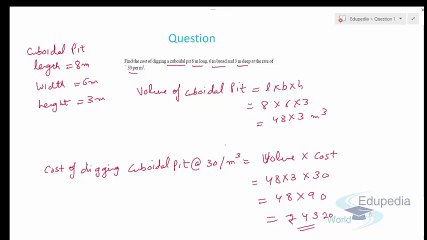 Edupedia > Question 1
Question
Find the cost of digging a cuboidal pit 8 m long, 6 m broad and 3 m deep at the rate of
30 per m³.
Cuboidal Pit
length = 8m
Width = 6m
height = 3m
Volume of cuboidal Pit = l x b x h
= 8 x 6 x 3
= 48 x 3 m³
Cost of digging cuboidal Pit @ 30/m³ = Volume x Cost
= 48 x 3 x 30
= 48 x 90
= ₹ 4320
Edupedia
World